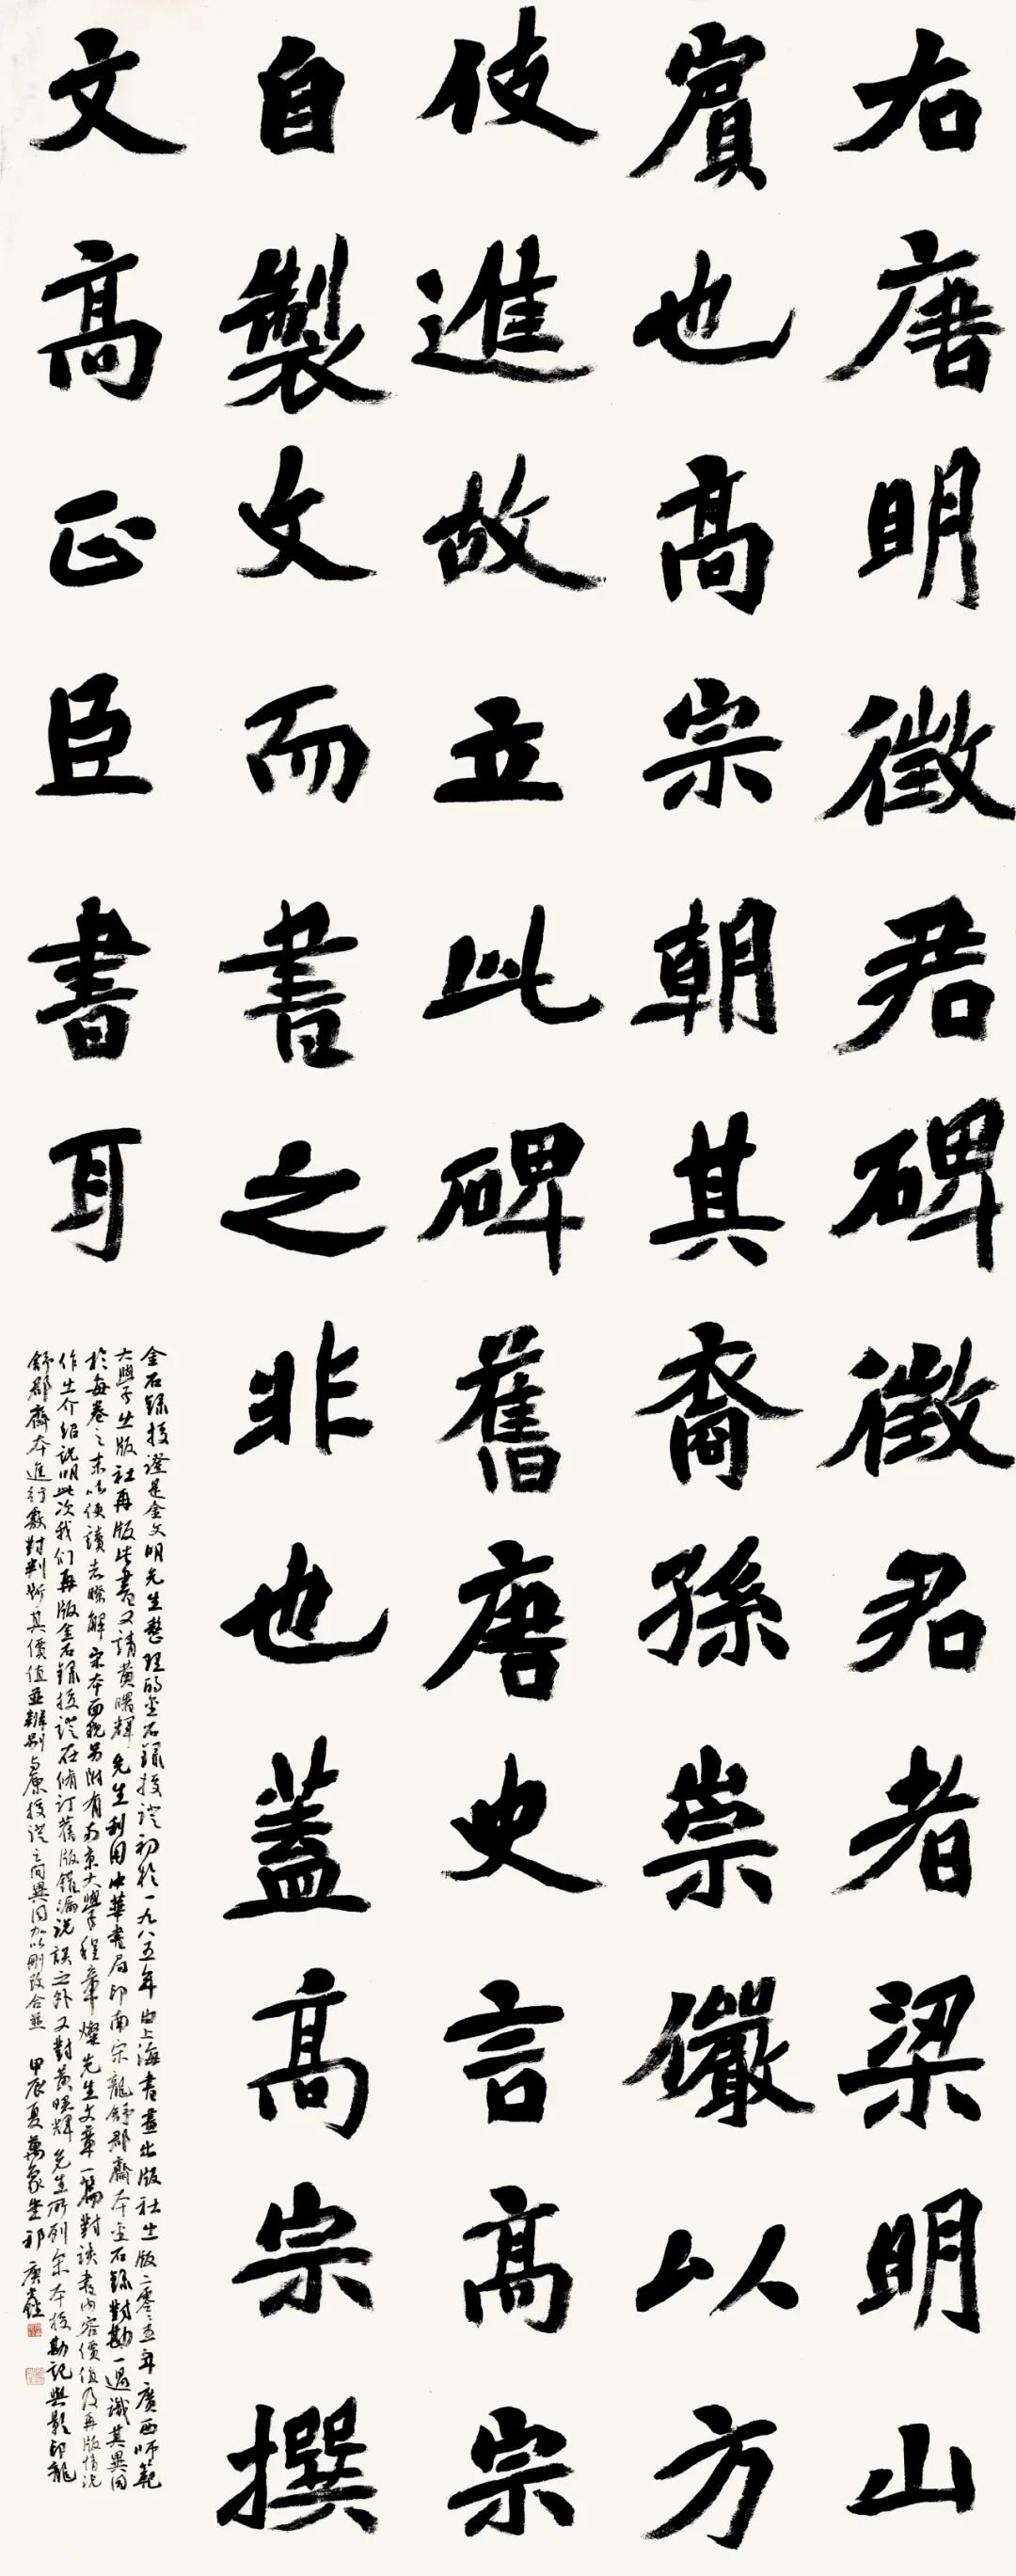 右唐明徵君碑徵君者梁明山
賓也高宗朝其裔孫崇儼以方
伎進故立此碑舊唐史言高宗
自製文而書之非也蓋高宗撰
文高正臣書耳
金石録校證是金文明先生整理的金石録校證初於一九八五年由上海書畫出版社出版二零零五年廣西師範
大學出版社再版此書又請黄曙輝先生利用中華書局印南宋龍舒郡齋本金石録對勘一過識其異同
於每卷之末以便讀者瞭解宋本面貌另附有南京大學程章燦先生文章一篇對該書内容價值及再版情况
作出介绍説明此次我们再版金石録校證在修訂舊版錯漏説誤之外又對黄曙輝先生所列宋本校勘記與影印龍
舒郡齋本進行覈對判斷其價值並辨别與原校證之間異同加以删改合並 甲辰夏萬象堂祁庚